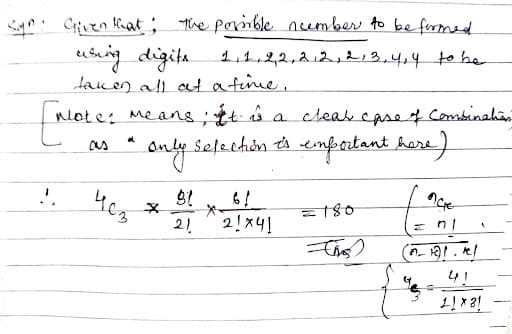 Sqn: Given that; The possible number to be formed
using digits 1,1,2,2,2,2,2,3,4,4 to be
taken all at a time.
[Note: Means; It is a clear case of Combination
as " only selection is important here)
∴ 4C3 × 3!/2! × 6!/2!×4! = 180
(Ans)
( nCr
= n!
(n-r)!.r!
{ 4C3 = 4!/1!×3!